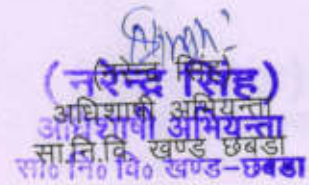 (नरेन्द्र सिंह)
(नरेन्द्र सिंह)
अधिशाषी अभियन्ता
अधिशाषी अभियन्ता
सा.नि.वि. खण्ड छबडा
सा० नि० वि० खण्ड-छबडा